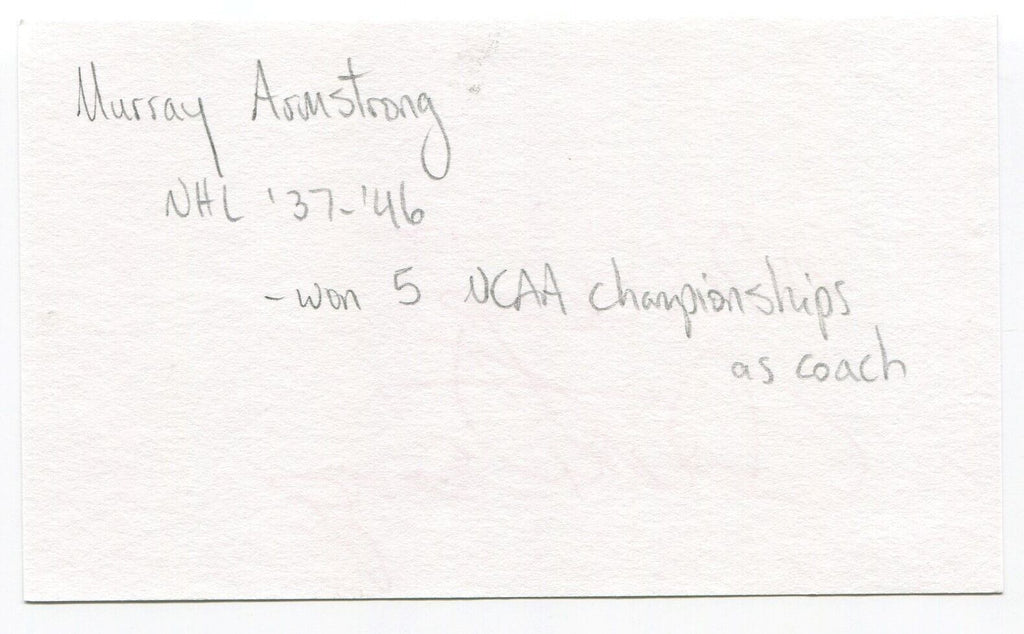 Murray Armstrong
NHL '37-'46
- won 5 NCAA championships
as coach